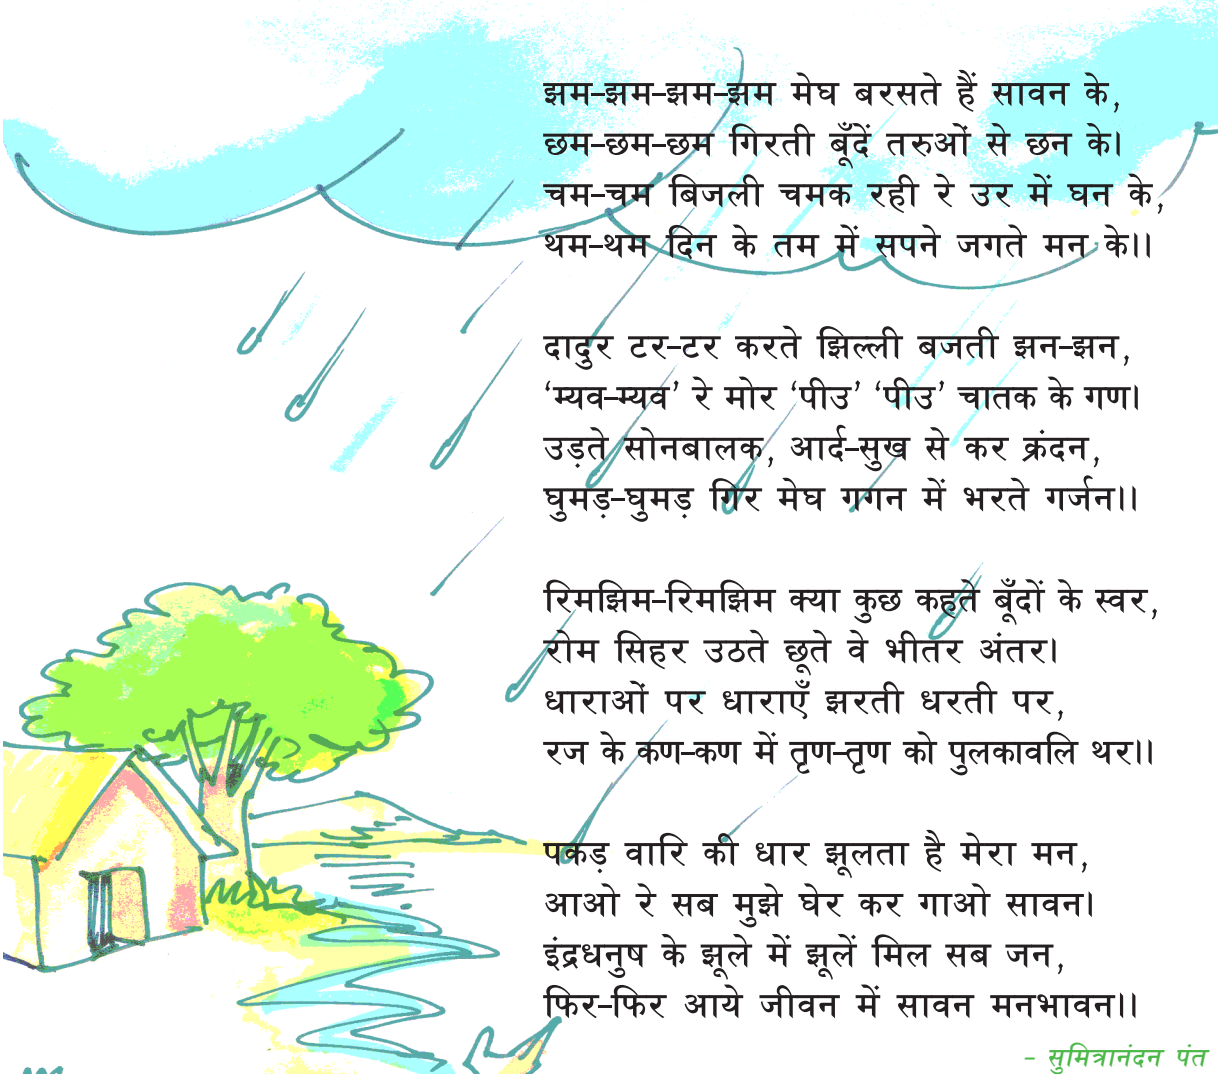 झम-झम-झम-झम मेघ बरसते हैं सावन के,
छम-छम-छम गिरती बूँदें तरुओं से छन के।
चम-चम बिजली चमक रही रे उर में घन के,
थम-थम दिन के तम में सपने जगते मन के।।
दादुर टर-टर करते झिल्ली बजती झन-झन,
‘म्यव-म्यव’ रे मोर ‘पीउ’ ‘पीउ’ चातक के गण।
उड़ते सोनबालक, आर्द-सुख से कर क्रंदन,
घुमड़-घुमड़ गिर मेघ गगन में भरते गर्जन।।
रिमझिम-रिमझिम क्या कुछ कहते बूँदों के स्वर,
रोम सिहर उठते छूते वे भीतर अंतर।
धाराओं पर धाराएँ झरती धरती पर,
रज के कण-कण में तृण-तृण को पुलकावलि थर।।
पकड़ वारि की धार झूलता है मेरा मन,
आओ रे सब मुझे घेर कर गाओ सावन।
इंद्रधनुष के झूले में झूलें मिल सब जन,
फिर-फिर आये जीवन में सावन मनभावन।।
- सुमित्रानंदन पंत